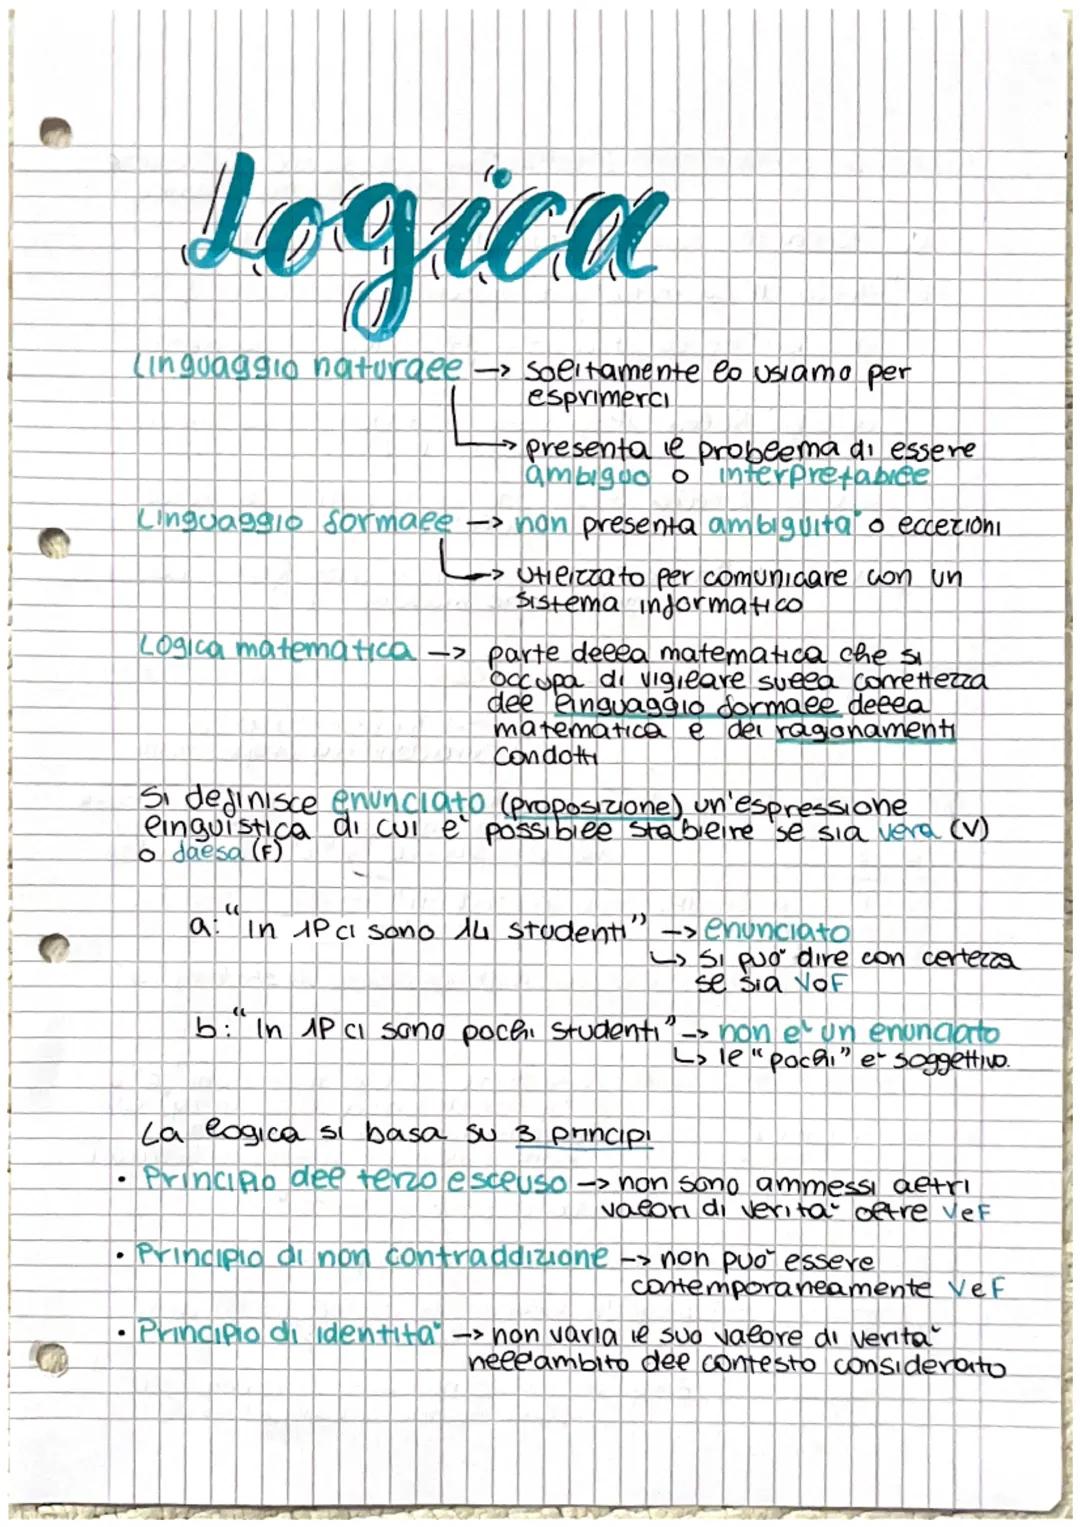 Logica
Linguaggio naturale → solitamente lo usiamo per
esprimerci
→ presenta il problema di essere
ambiguo o interpretabile
Linguaggio formale → non presenta ambiguità o eccezioni
→ utilizzato per comunicare con un
sistema informatico
Logica matematica → parte della matematica che si
occupa di vigilare sulla correttezza
del linguaggio formale della
matematica e dei ragionamenti
condotti
Si definisce enunciato (proposizione) un'espressione
linguistica di cui è possibile stabilire se sia vera (V)
o falsa (F)
a: "In 1P ci sono 14 studenti" → enunciato
↳ si può dire con certezza
se sia V o F
b: "In 1P ci sono pochi studenti" → non è un enunciato
↳ il "pochi" è soggettivo.
La logica si basa su 3 principi
• Principio del terzo escluso → non sono ammessi altri
valori di verità oltre V e F
• Principio di non contraddizione → non può essere
contemporaneamente V e F
• Principio di identità → non varia il suo valore di verità
nell'ambito del contesto considerato